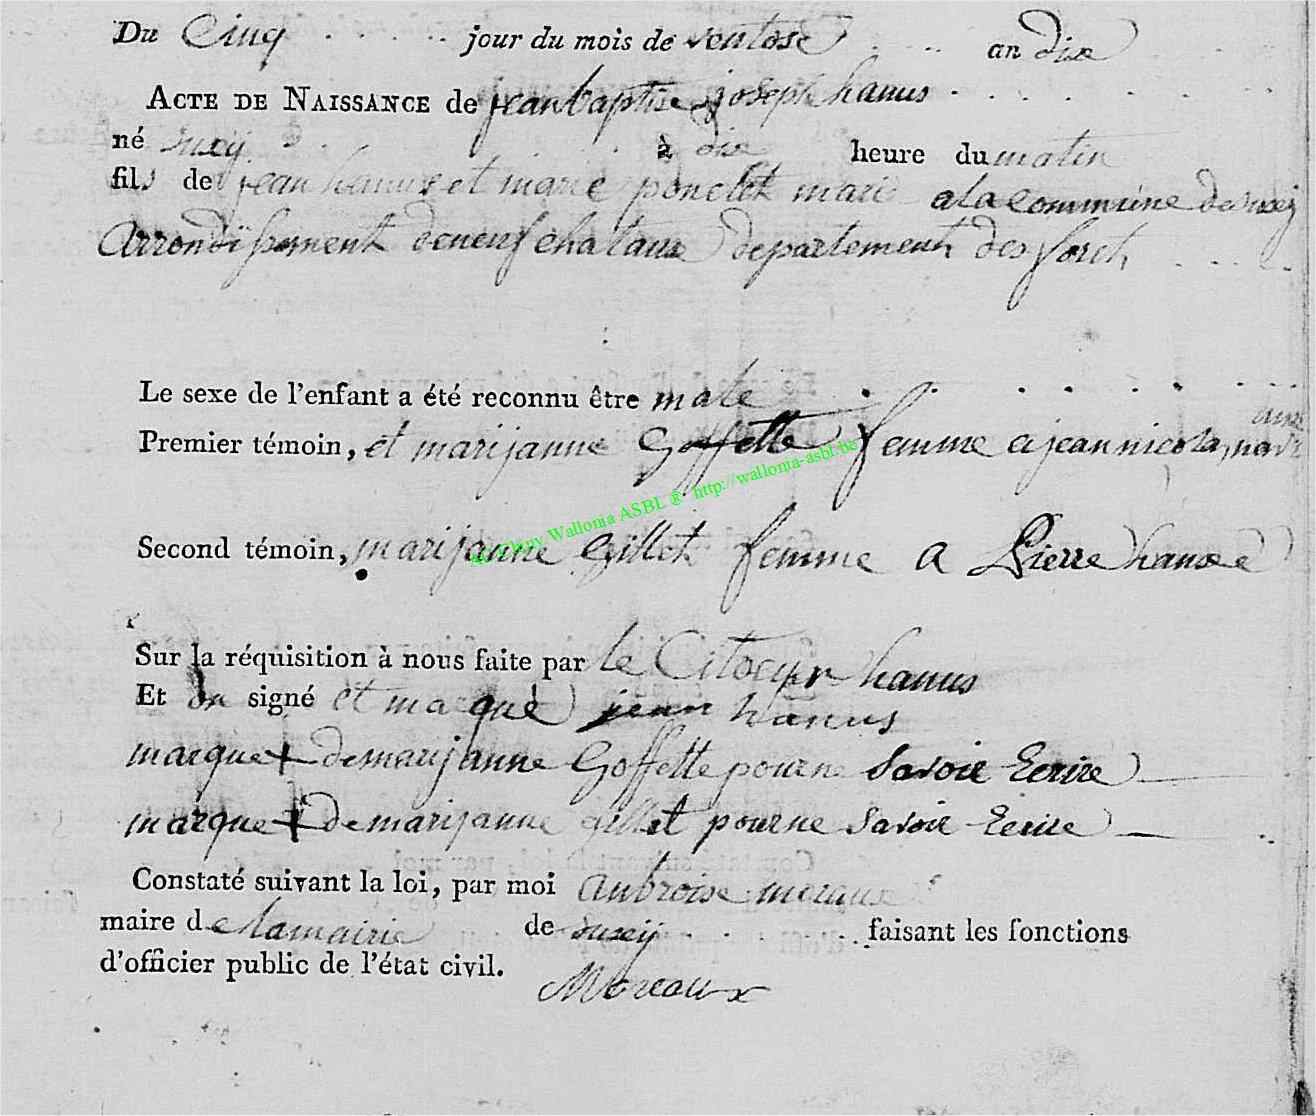 Du Cinq jour du mois de ventose an dix
ACTE DE NAISSANCE de jean baptise joseph hanus
né suxÿ à dix heure du matin
fils de jean hanus et marie ponclet mari a la commune de suxÿ
Arrondissement de neufchataux departement des foret
Le sexe de l'enfant a été reconnu être male
Premier témoin, et marijanne Goffette femme a jean nicola
Second témoin, marijanne Gillet femme a Pierre hansé
Sur la réquisition à nous faite par le Citoeyn hanus
Et on signé et marqué jean hanus
marque + de marijanne Goffette pour ne savoir Ecrire
marque + de marijanne gillet pour ne savoir Ecrire
Constaté suivant la loi, par moi anbroise moraux
maire de la mairie de suxeÿ faisant les fonctions
d'officier public de l'état civil.
Moreaux
Wallonia ASBL ® http://wallonia-asbl.be